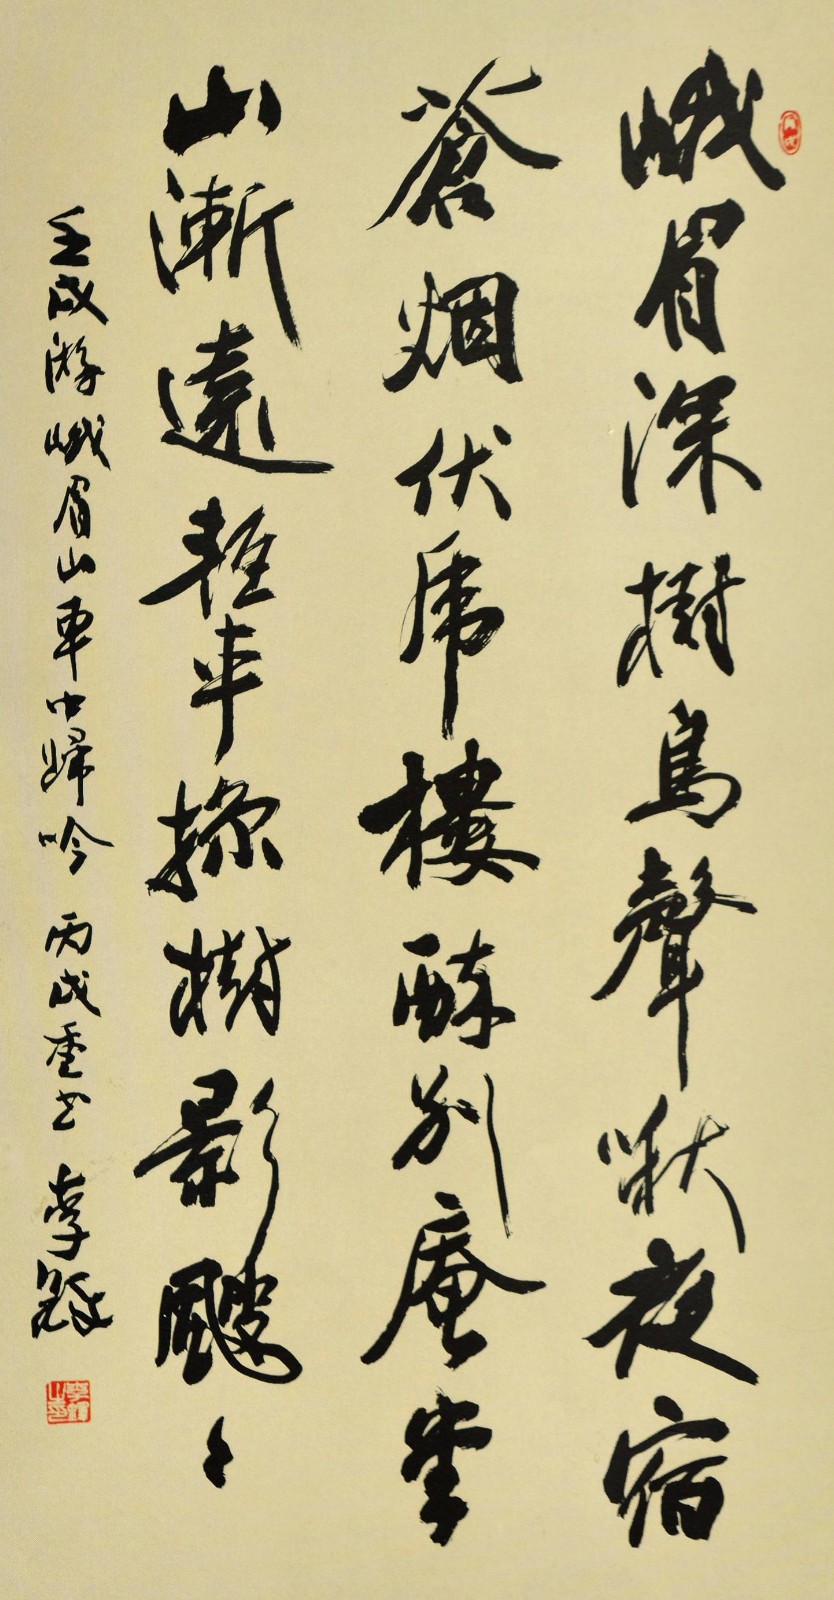 峨眉深樹鳥聲啾夜宿
蒼烟伏虎樓醉別庵堂
山漸遠輕車掠樹影颼〻
壬戌游峨眉山車中歸吟 丙戌重书 李鐸
李鐸之印